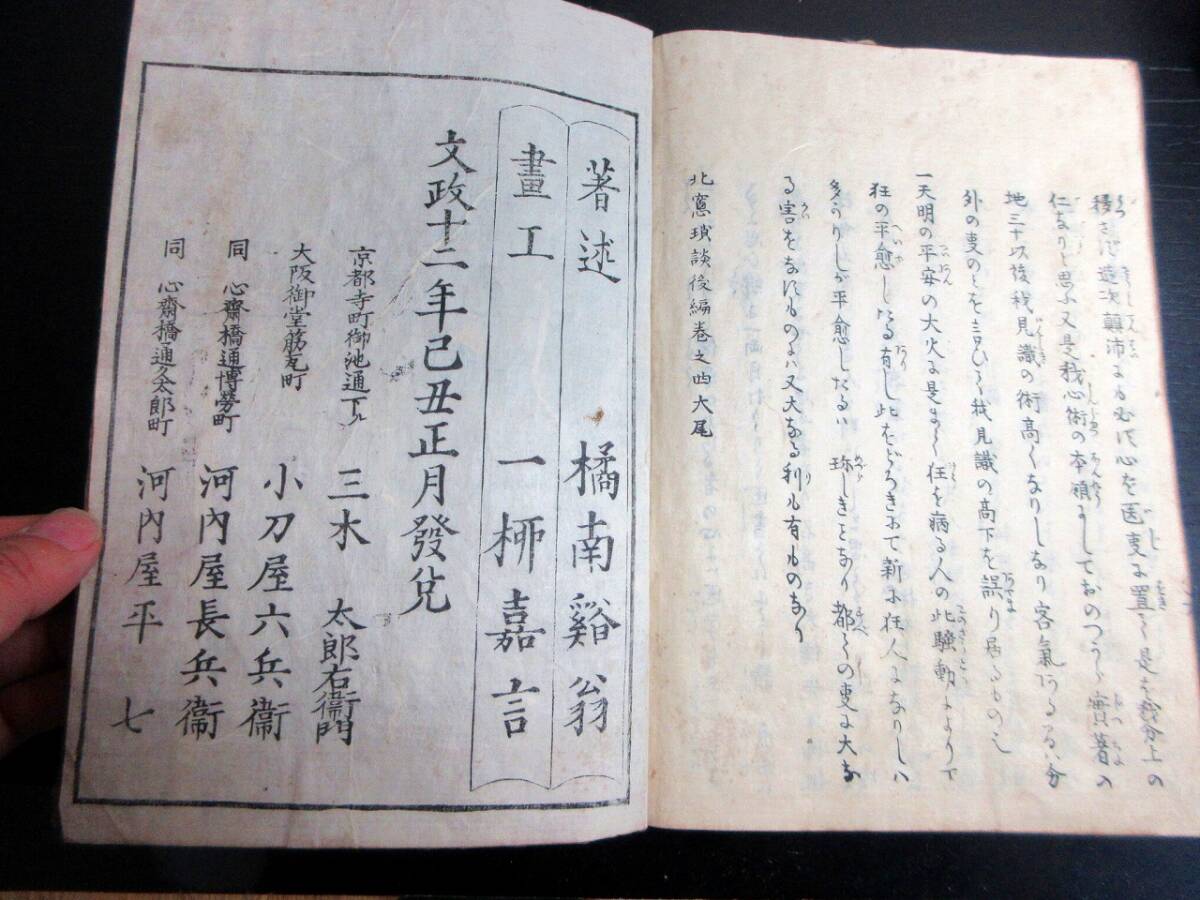 移さば造次顛沛にも必ず心を医事に置くべし是を我分上の
仁なりと思ふ又是我心術の本領にしておのづから實著の
地三十以後我見識の術高くなりしなり客氣ある
外の事のことを言ひても我見識の高下を誤り居るもの也
一天明の平安の大火に是まで狂を病る人の此騒動によりて
狂の平愈したる有し此をどろきにて新に狂人になりしハ
多かりしが平愈したるハ珍しきことなり都ての事に大な
る害をなすものハ又大なる利も有ものなり
北窻瑣談後編巻之四大尾
著述 橘南谿翁
畫工 一栁嘉言
文政十二年己丑正月發兌
京都寺町御池通下ル 三木 太郎右衞門
大阪御堂筋瓦町 小刀屋六兵衞
同 心齋橋通博勞町 河内屋長兵衞
同 心齋橋通久太郎町 河内屋平七